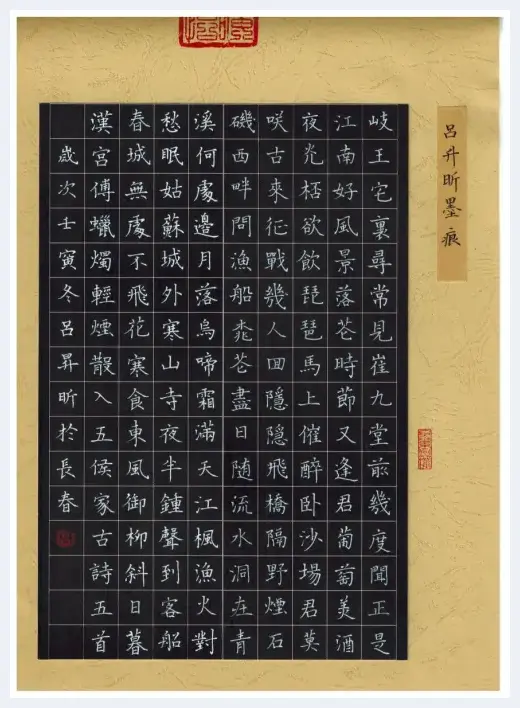 呂升昕墨痕
岐王宅裏尋常見崔九堂前幾度聞正是
江南好風景落花時節又逢君葡萄美酒
夜光桮欲飲琵琶馬上催醉卧沙場君莫
咲古來征戰幾人回隱隱飛橋隔野煙石
磯西畔問漁船桃花盡日随流水洞在青
溪何處邊月落烏啼霜滿天江楓漁火對
愁眠姑蘇城外寒山寺夜半鍾聲到客船
春城無處不飛花寒食東風御柳斜日暮
漢宮傳蠟燭輕煙散入五侯家古詩五首
歲次壬寅冬呂昇昕於長春